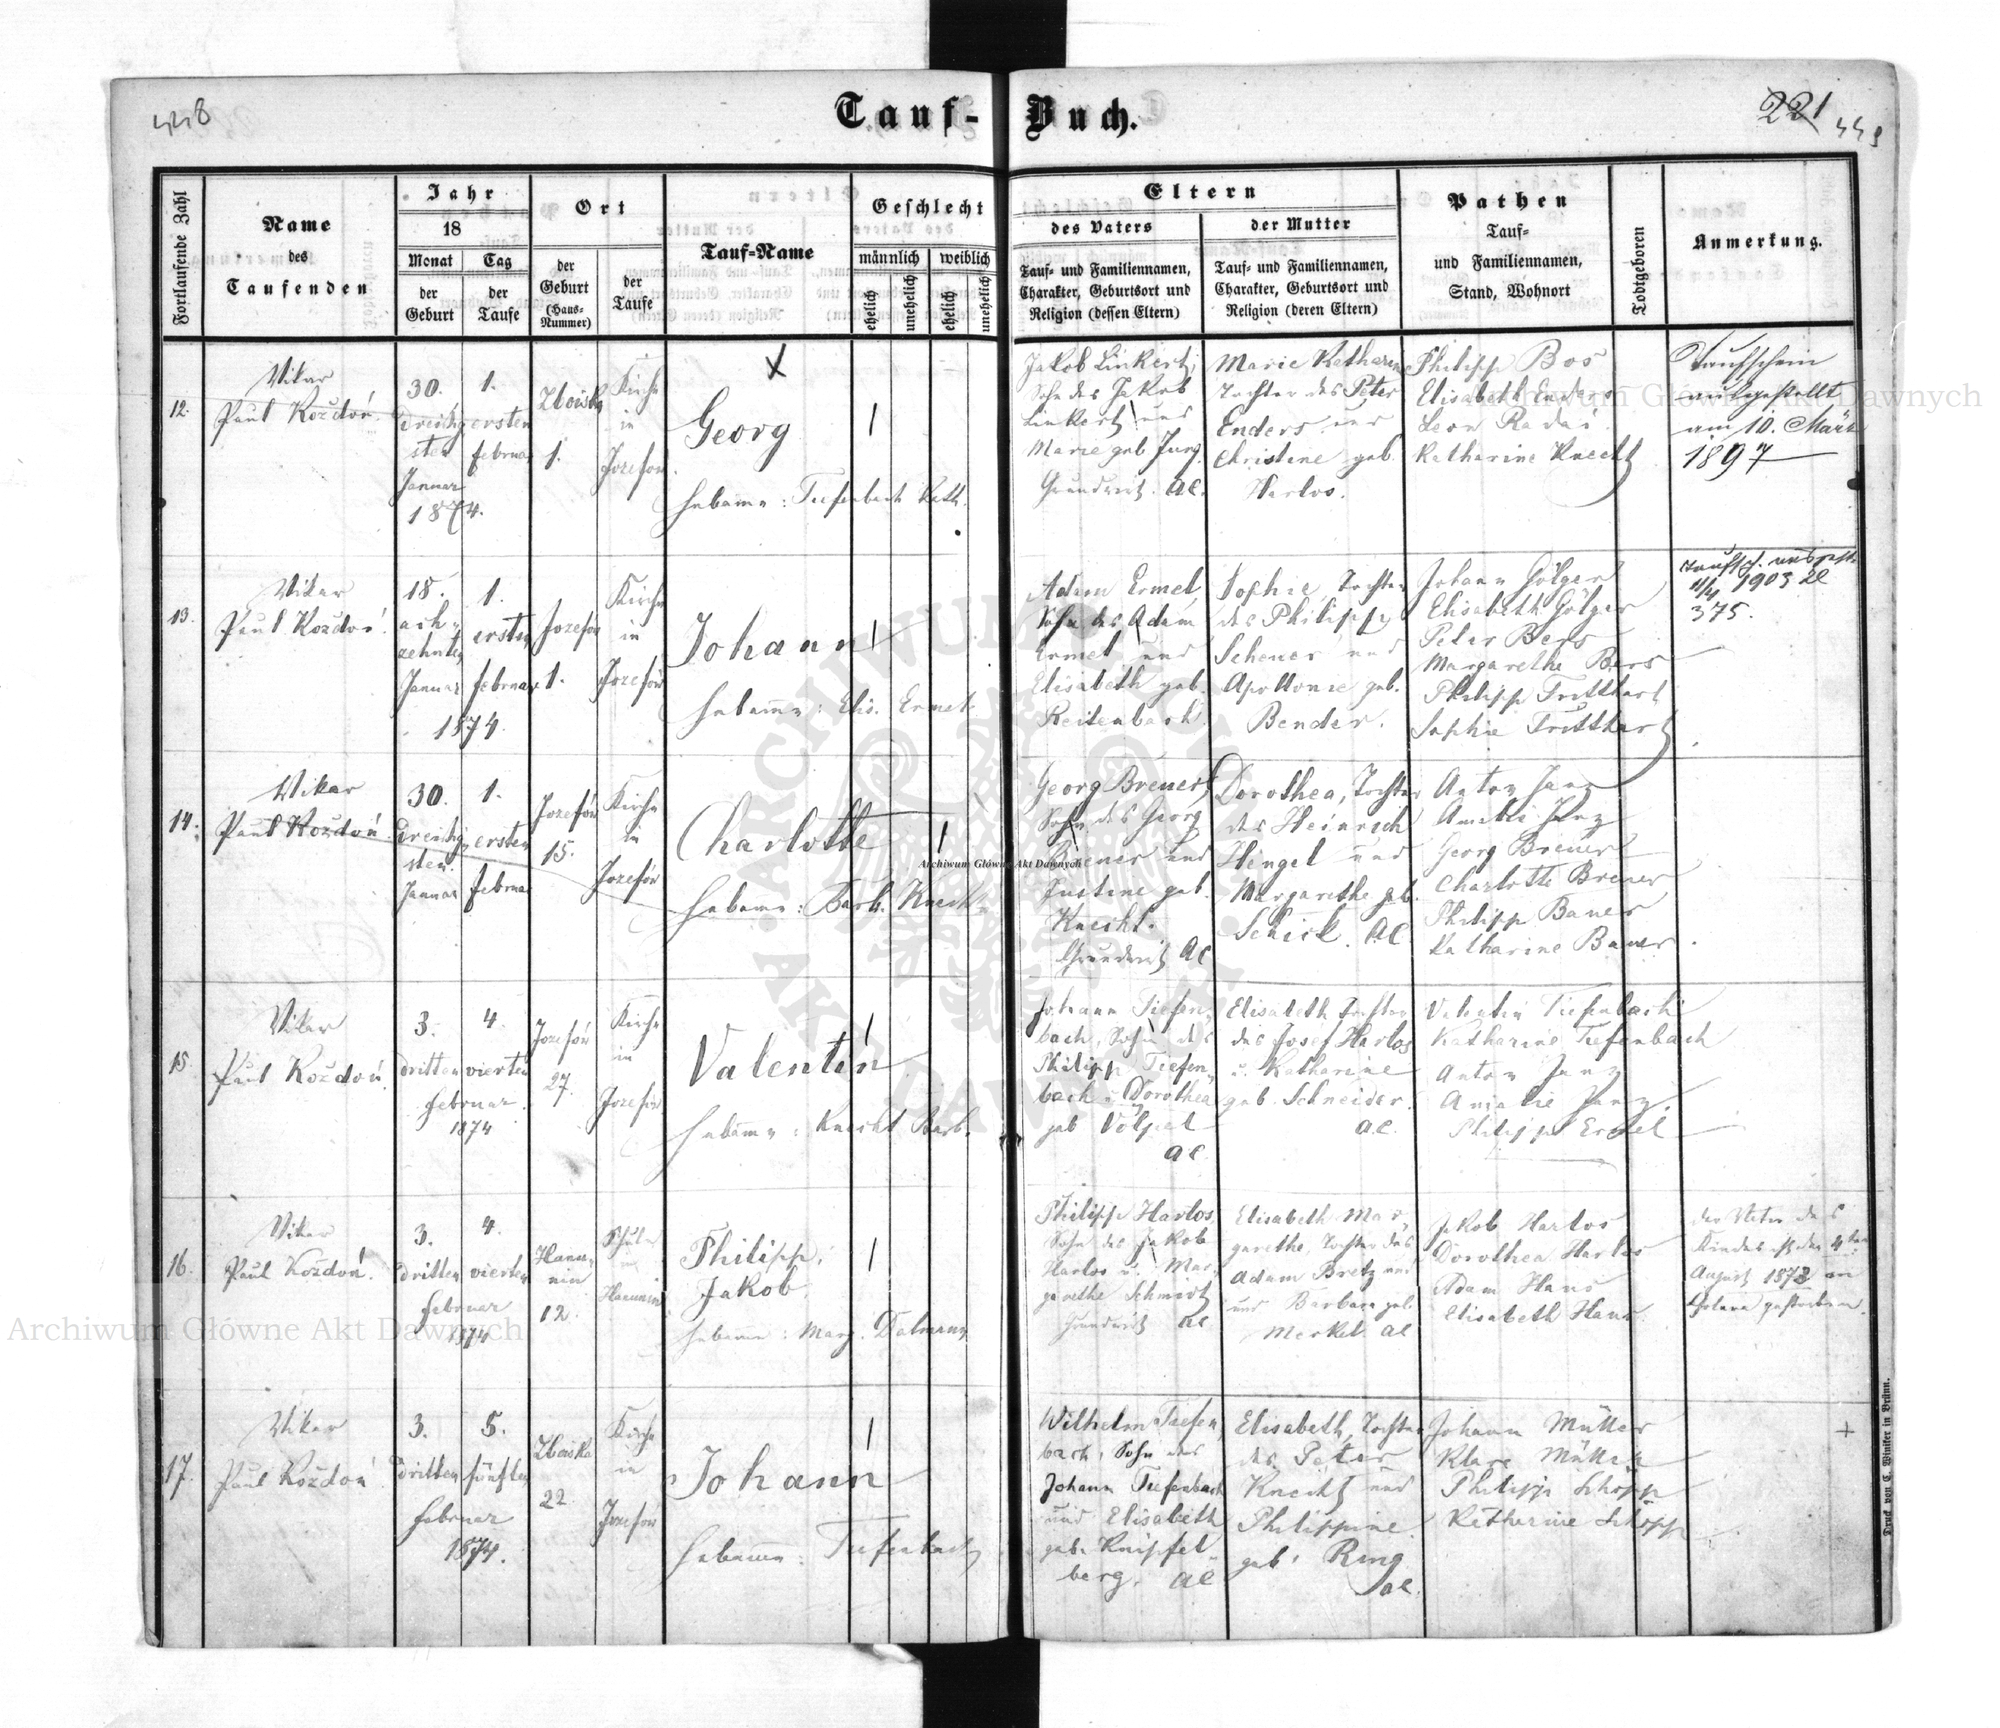 448
Tauf-Buch.
221
449
Fortlaufende Zahl
Name
des
Taufenden
Jahr
18
Monat
der
Geburt
Tag
der
Taufe
Ort
der
Geburt
(Haus-
Nummer)
der
Taufe
Tauf=Name
Geschlecht
männlich
weiblich
ehelich
unehelich
ehelich
unehelich
Eltern
des Vaters
Tauf= und Familiennamen,
Charakter, Geburtsort und
Religion (dessen Eltern)
der Mutter
Tauf= und Familiennamen,
Charakter, Geburtsort und
Religion (deren Eltern)
Pathen
Tauf=
und Familiennamen,
Stand, Wohnort
Todtgeboren
Anmerkung.
12.
Vikar
Paul Kozdoń.
30.
dreißig
sten
Januar
1874.
1.
ersten
februar
Zboiska
1.
Kirche
in
Jozefów.
Georg
Hebamme: Tiefenbach Kath.
Jakob Linkert,
Sohn des Jakob
Linkert und
Marie geb. Jung.
Grundwirt. AC.
Marie Katharina
Tochter des Peter
Enders und
Christine geb.
Harlos.
Philipp Bos
Elisabeth Enders
Leon Radai
Katharine Knecht
Taufschein
ausgestellt
am 10. März
1897
13.
Vikar
Paul Kozdoń.
18.
ach-
zehnten
Januar
1874.
1.
ersten
februar
Jozefów
1.
Kirche
in
Jozefów
Johann
Hebamme: Elis. Ermel.
Adam Ermel,
Sohn des Adam
Ermel und
Elisabeth geb.
Reitenbach.
Sophie, Tochter
des Philipp
Scheuer und
Apollonie geb.
Bender.
Johann Gölger
Elisabeth Gölger
Peter Bers
Margarethe Bers
Philipp Tritthart
Sophie Tritthart
Taufsch. ausgest.
11/4 1903
375.
14.
Vikar
Paul Kozdoń.
30.
dreißig
sten
Januar
1.
ersten
februar
Jozefów
15.
Kirche
in
Jozefów
Charlotte
Hebamme: Barb. Knecht
Georg Brener,
Sohn des Georg
Brener und
Justine geb.
Knecht.
Grundwirt AC
Dorothea, Tochter
des Heinrich
Hengel und
Margarethe geb.
Schick. AC
Anton Janz
Amalie Janz
Georg Brener
Charlotte Brener
Philipp Bauer
Katharine Bauer.
15
Vikar
Paul Kozdoń.
3.
dritten
februar.
1874
4.
vierten
Jozefów
27.
Kirche
in
Jozefów
Valentin
Hebamme: Knecht Barb.
Johann Tiefen-
bach, Sohn des
Philipp Tiefen-
bach u. Dorothea
geb Völpel
AC.
Elisabeth Tochter
des Josef Harlos
u. Katharine
geb. Schneider.
AC.
Valentin Tiefenbach
Katharine Tiefenbach
Anton Janz
Amalie Janz.
Philipp Ermel
16.
Vikar
Paul Kozdoń.
3.
dritten
februar
1874
4.
vierten
Hanu-
nin
12.
Schule
in
Hanunin
Philipp
Jakob.
Hebamme: Marg. Dalmann
Philipp Harlos,
Sohn des Jakob
Harlos u. Mar-
garethe Schmidt
Grundwirt AC
Elisabeth Mar-
garethe, Tochter des
Adam Bretz und
und Barbara geb.
Merkel. AC
Jakob Harlos
Dorothea Harlos
Adam Haus
Elisabeth Haus.
der Vater des
Kindes ist den 4ten
August 1873 an
Cholera gestorben.
17.
Vikar
Paul Kozdoń
3.
dritten
februar
1874.
5.
fünften
Zboiska
22
Kirche
in
Jozefów
Johann
Hebamme: Tiefenbach
Wilhelm Tiefen-
bach, Sohn des
Johann Tiefenbach
und Elisabeth
geb. Knipfel-
berg. AC
Elisabeth, Tochter
des Peter
Knecht und
Philippine
geb. Ring
AC.
Johann Müller
Klara Müller
Philipp Schöpp
Katharine Schöpp
+
Druck von C. Winiker in Brünn.
Archiwum Główne Akt Dawnych
Archiwum Główne Akt Dawnych
Archiwum Główne Akt Dawnych
ARCHIWUM GŁÓWNE AKT DAWNYCH